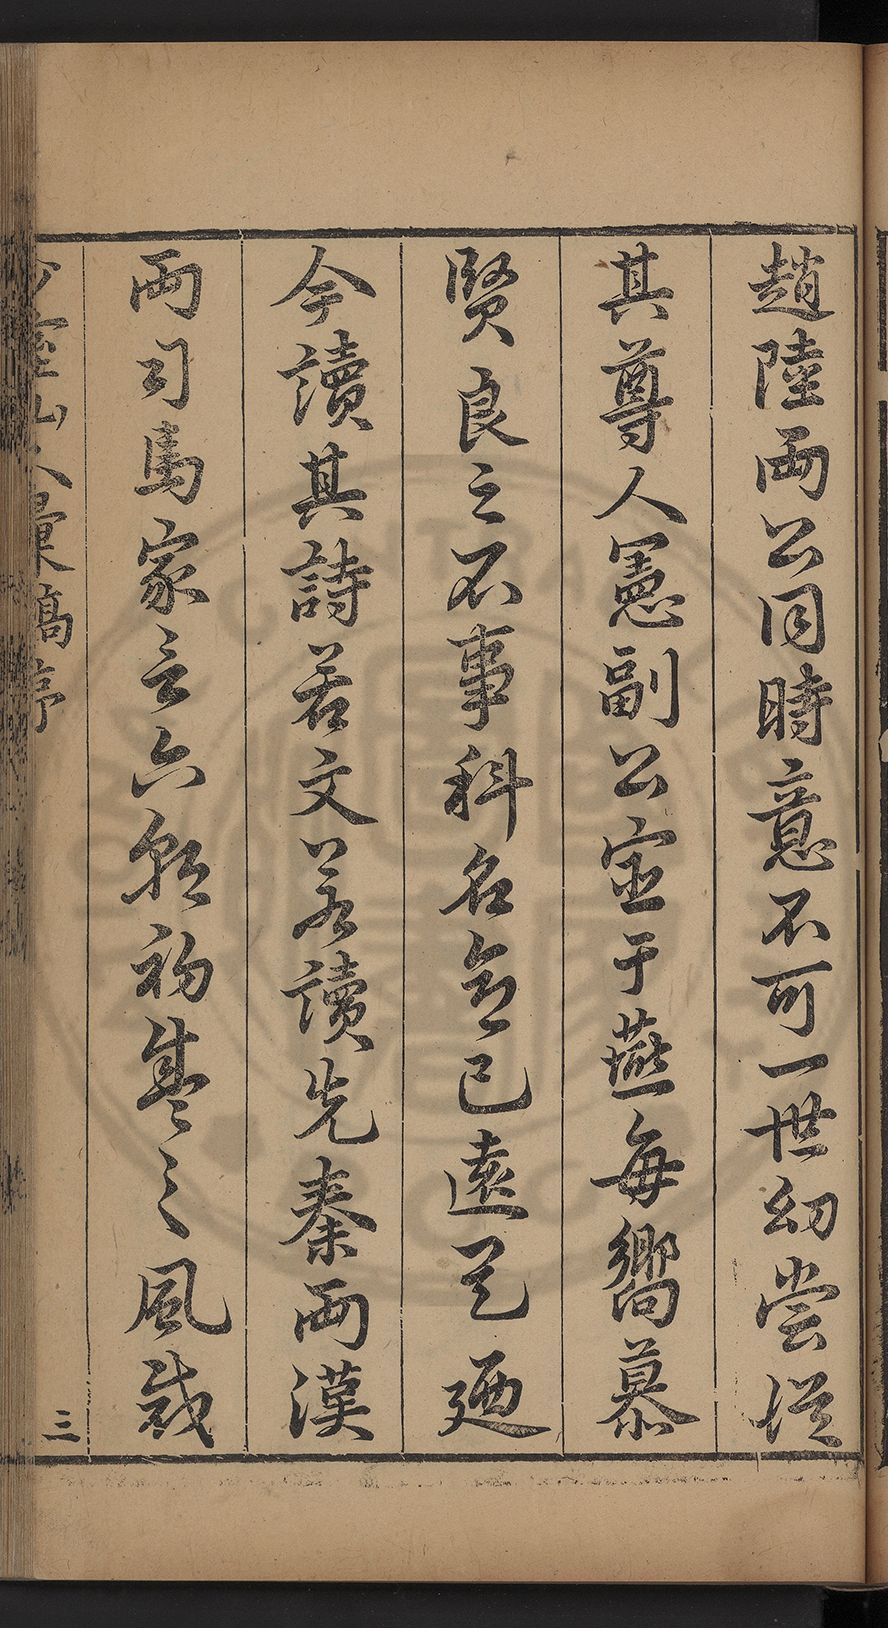 趙陸兩公同時意不可一世幼嘗從
其尊人憲副公宦于燕每嚮慕
賢良之不事科名念已遠是廼
今讀其詩若文若讀先秦兩漢
兩司馬家言六朝初盛之風哉
少室山人彙稿序
三